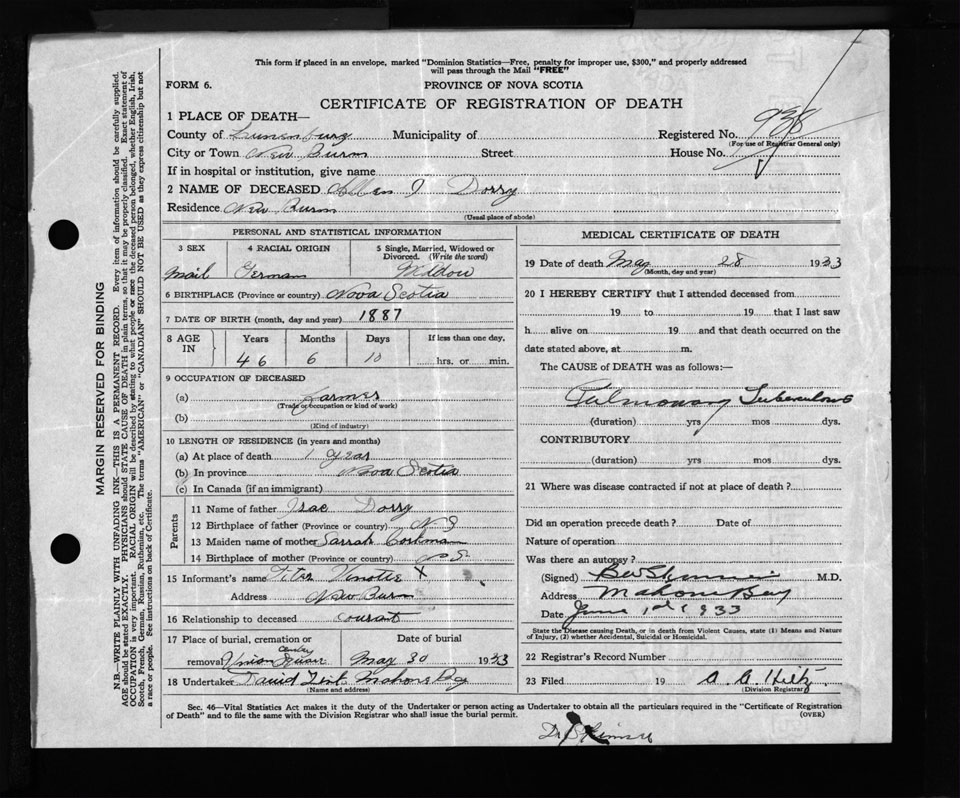 This form if placed in an envelope, marked "Dominion Statistics—Free, penalty for improper use, $300," and properly addressed
will pass through the Mail "FREE"
FORM 6. PROVINCE OF NOVA SCOTIA
CERTIFICATE OF REGISTRATION OF DEATH
1 PLACE OF DEATH—
County of Lunenburg Municipality of Registered No. 938
(For use of Registrar General only)
City or Town New Burn Street House No.
If in hospital or institution, give name
2 NAME OF DECEASED Allen J Dorry
Residence New Burn
(Usual place of abode)
PERSONAL AND STATISTICAL INFORMATION
3 SEX 4 RACIAL ORIGIN 5 Single, Married, Widowed or
Divorced. (Write the word)
mail German Widdow
6 BIRTHPLACE (Province or country) Nova Scotia
7 DATE OF BIRTH (month, day and year) 1887
8 AGE IN Years Months Days If less than one day.
46 6 10 hrs. or min.
9 OCCUPATION OF DECEASED
(a) Farmer
(Trade or occupation or kind of work)
(b)
(Kind of industry)
10 LENGTH OF RESIDENCE (in years and months)
(a) At place of death 1 year
(b) In province Nova Scotia
(c) In Canada (if an immigrant)
Parents
11 Name of father Isac Dorry
12 Birthplace of father (Province or country) N S
13 Maiden name of mother Sarrah
14 Birthplace of mother (Province or country) N S.
15 Informant's name X
Address New Burn
16 Relationship to deceased
17 Place of burial, cremation or Date of burial
removal Union Square May 30 1933
18 Undertaker David Mahone Bay
(Name and address)
MEDICAL CERTIFICATE OF DEATH
19 Date of death May 28 1933
(Month, day and year)
20 I HEREBY CERTIFY that I attended deceased from
19 to 19 that I last saw
h alive on 19 and that death occurred on the
date stated above, at m.
The CAUSE of DEATH was as follows:—
Pulmonary Tuberculosis
(duration) yrs mos dys.
CONTRIBUTORY
(duration) yrs. mos dys.
21 Where was disease contracted if not at place of death?
Did an operation precede death? Date of
Nature of operation
Was there an autopsy?
(Signed) M.D.
Address Mahone Bay
Date June 1st 1933
State the Disease causing Death, or in death from Violent Causes, state (1) Means and Nature
of Injury, (2) whether Accidental, Suicidal or Homicidal.
22 Registrar's Record Number
23 Filed 19 A. A. Hiltz
(Division Registrar)
Sec. 46—Vital Statistics Act makes it the duty of the Undertaker or person acting as Undertaker to obtain all the particulars required in the "Certificate of Registration
of Death" and to file the same with the Division Registrar who shall issue the burial permit. (OVER)
MARGIN RESERVED FOR BINDING
N.B.—WRITE PLAINLY WITH UNFADING INK—THIS IS A PERMANENT RECORD. Every item of information should be carefully supplied.
AGE should be stated EXACTLY. PHYSICIANS should STATE CAUSE OF DEATH in plain terms, so that it may be properly classified. Exact statement of
OCCUPATION is very important. RACIAL ORIGIN will be described by stating to what people or race the deceased person belonged, whether English, Irish,
Scotch, French, German, Russian, Ruthenian, etc. The terms "AMERICAN" or "CANADIAN" SHOULD NOT BE USED as they express citizenship but not
a race or people. See instructions on back of Certificate.